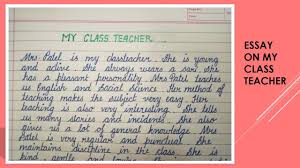 MY CLASS TEACHER
Mrs. Patel is my classteacher. She is young
and active. She always wears a sari. She
has a pleasant personality. Mrs Patel teaches
us English and Social Science. Her method of
teaching makes the subject very easy. Her
teaching is also very interesting. She tells
us many stories and incidents. She also
gives us a lot of general knowledge. Mrs
Patel is very regular and punctual. She
maintains discipline in the class. She is
kind, gentle and
ESSAY
ON MY
CLASS
TEACHER